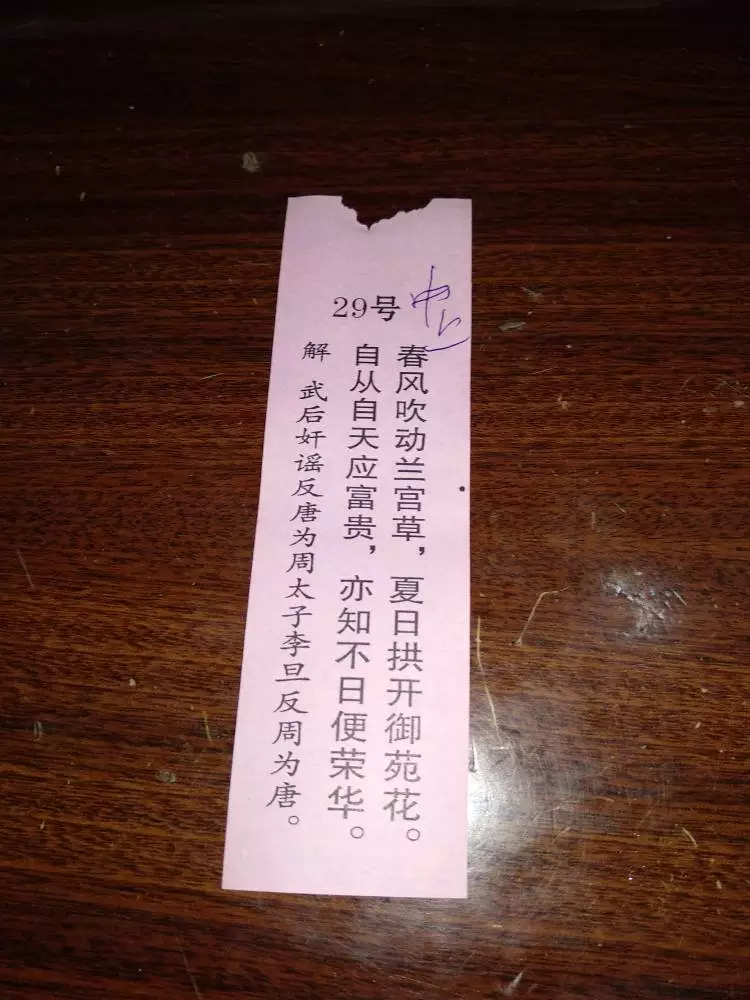 29号
中上
春风吹动兰宫草，夏日拱开御苑花。
自从自天应富贵，亦知不日便荣华。
解 武后奸谣反唐为周太子李旦反周为唐。